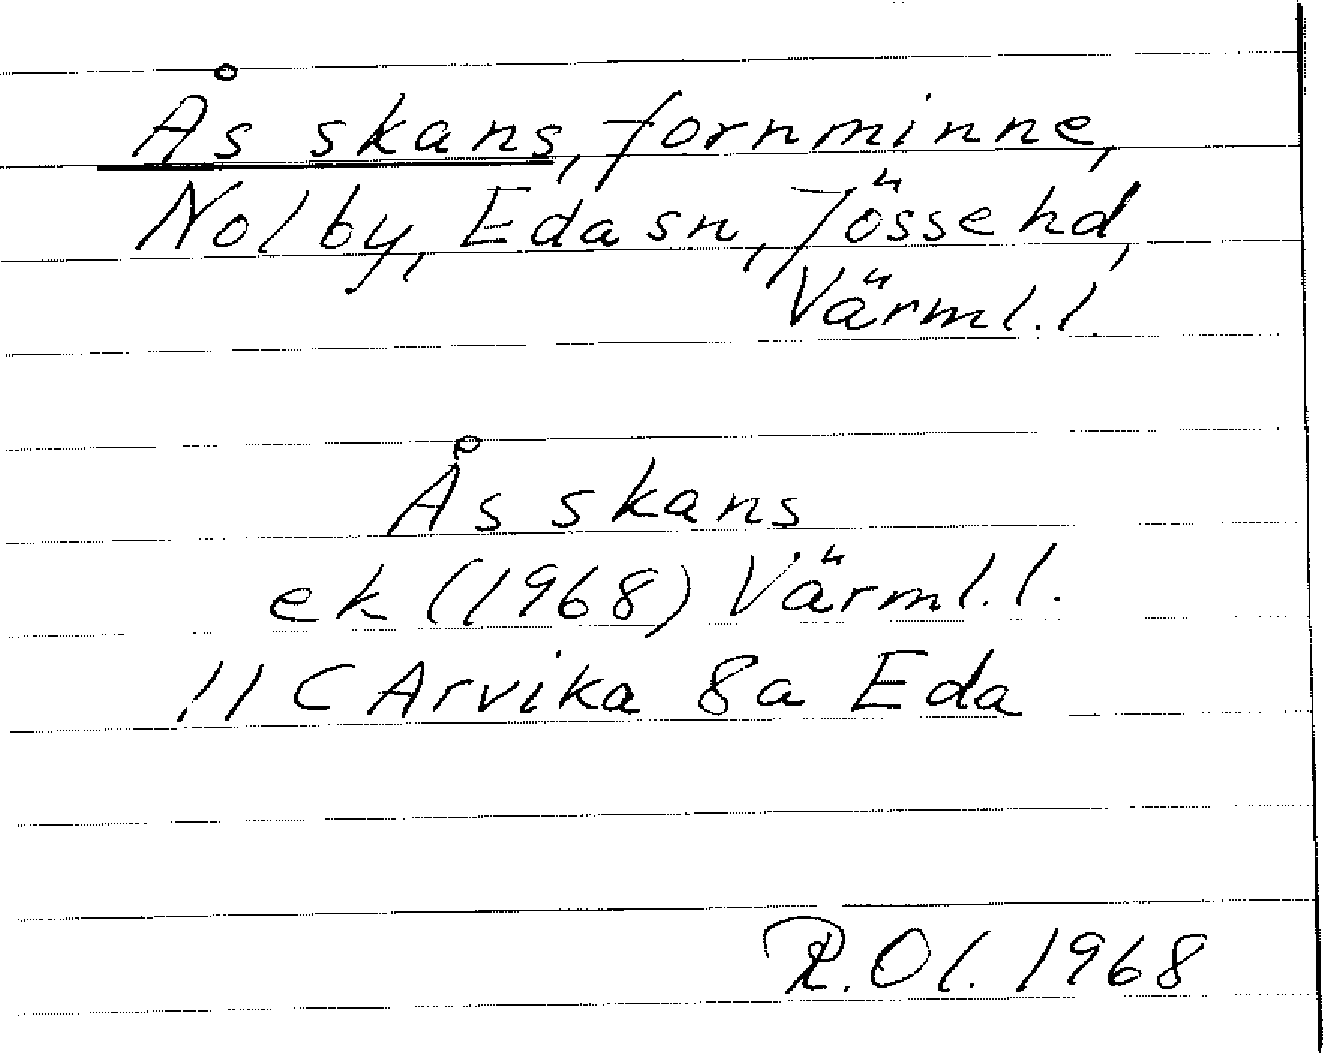 Ås skans, fornminne,
Nolby, Eda sn, Jösse hd,
Värml. l.
Ås skans
ek (1968) Värml. l.
11 C Arvika 8a Eda
R. Ol. 1968